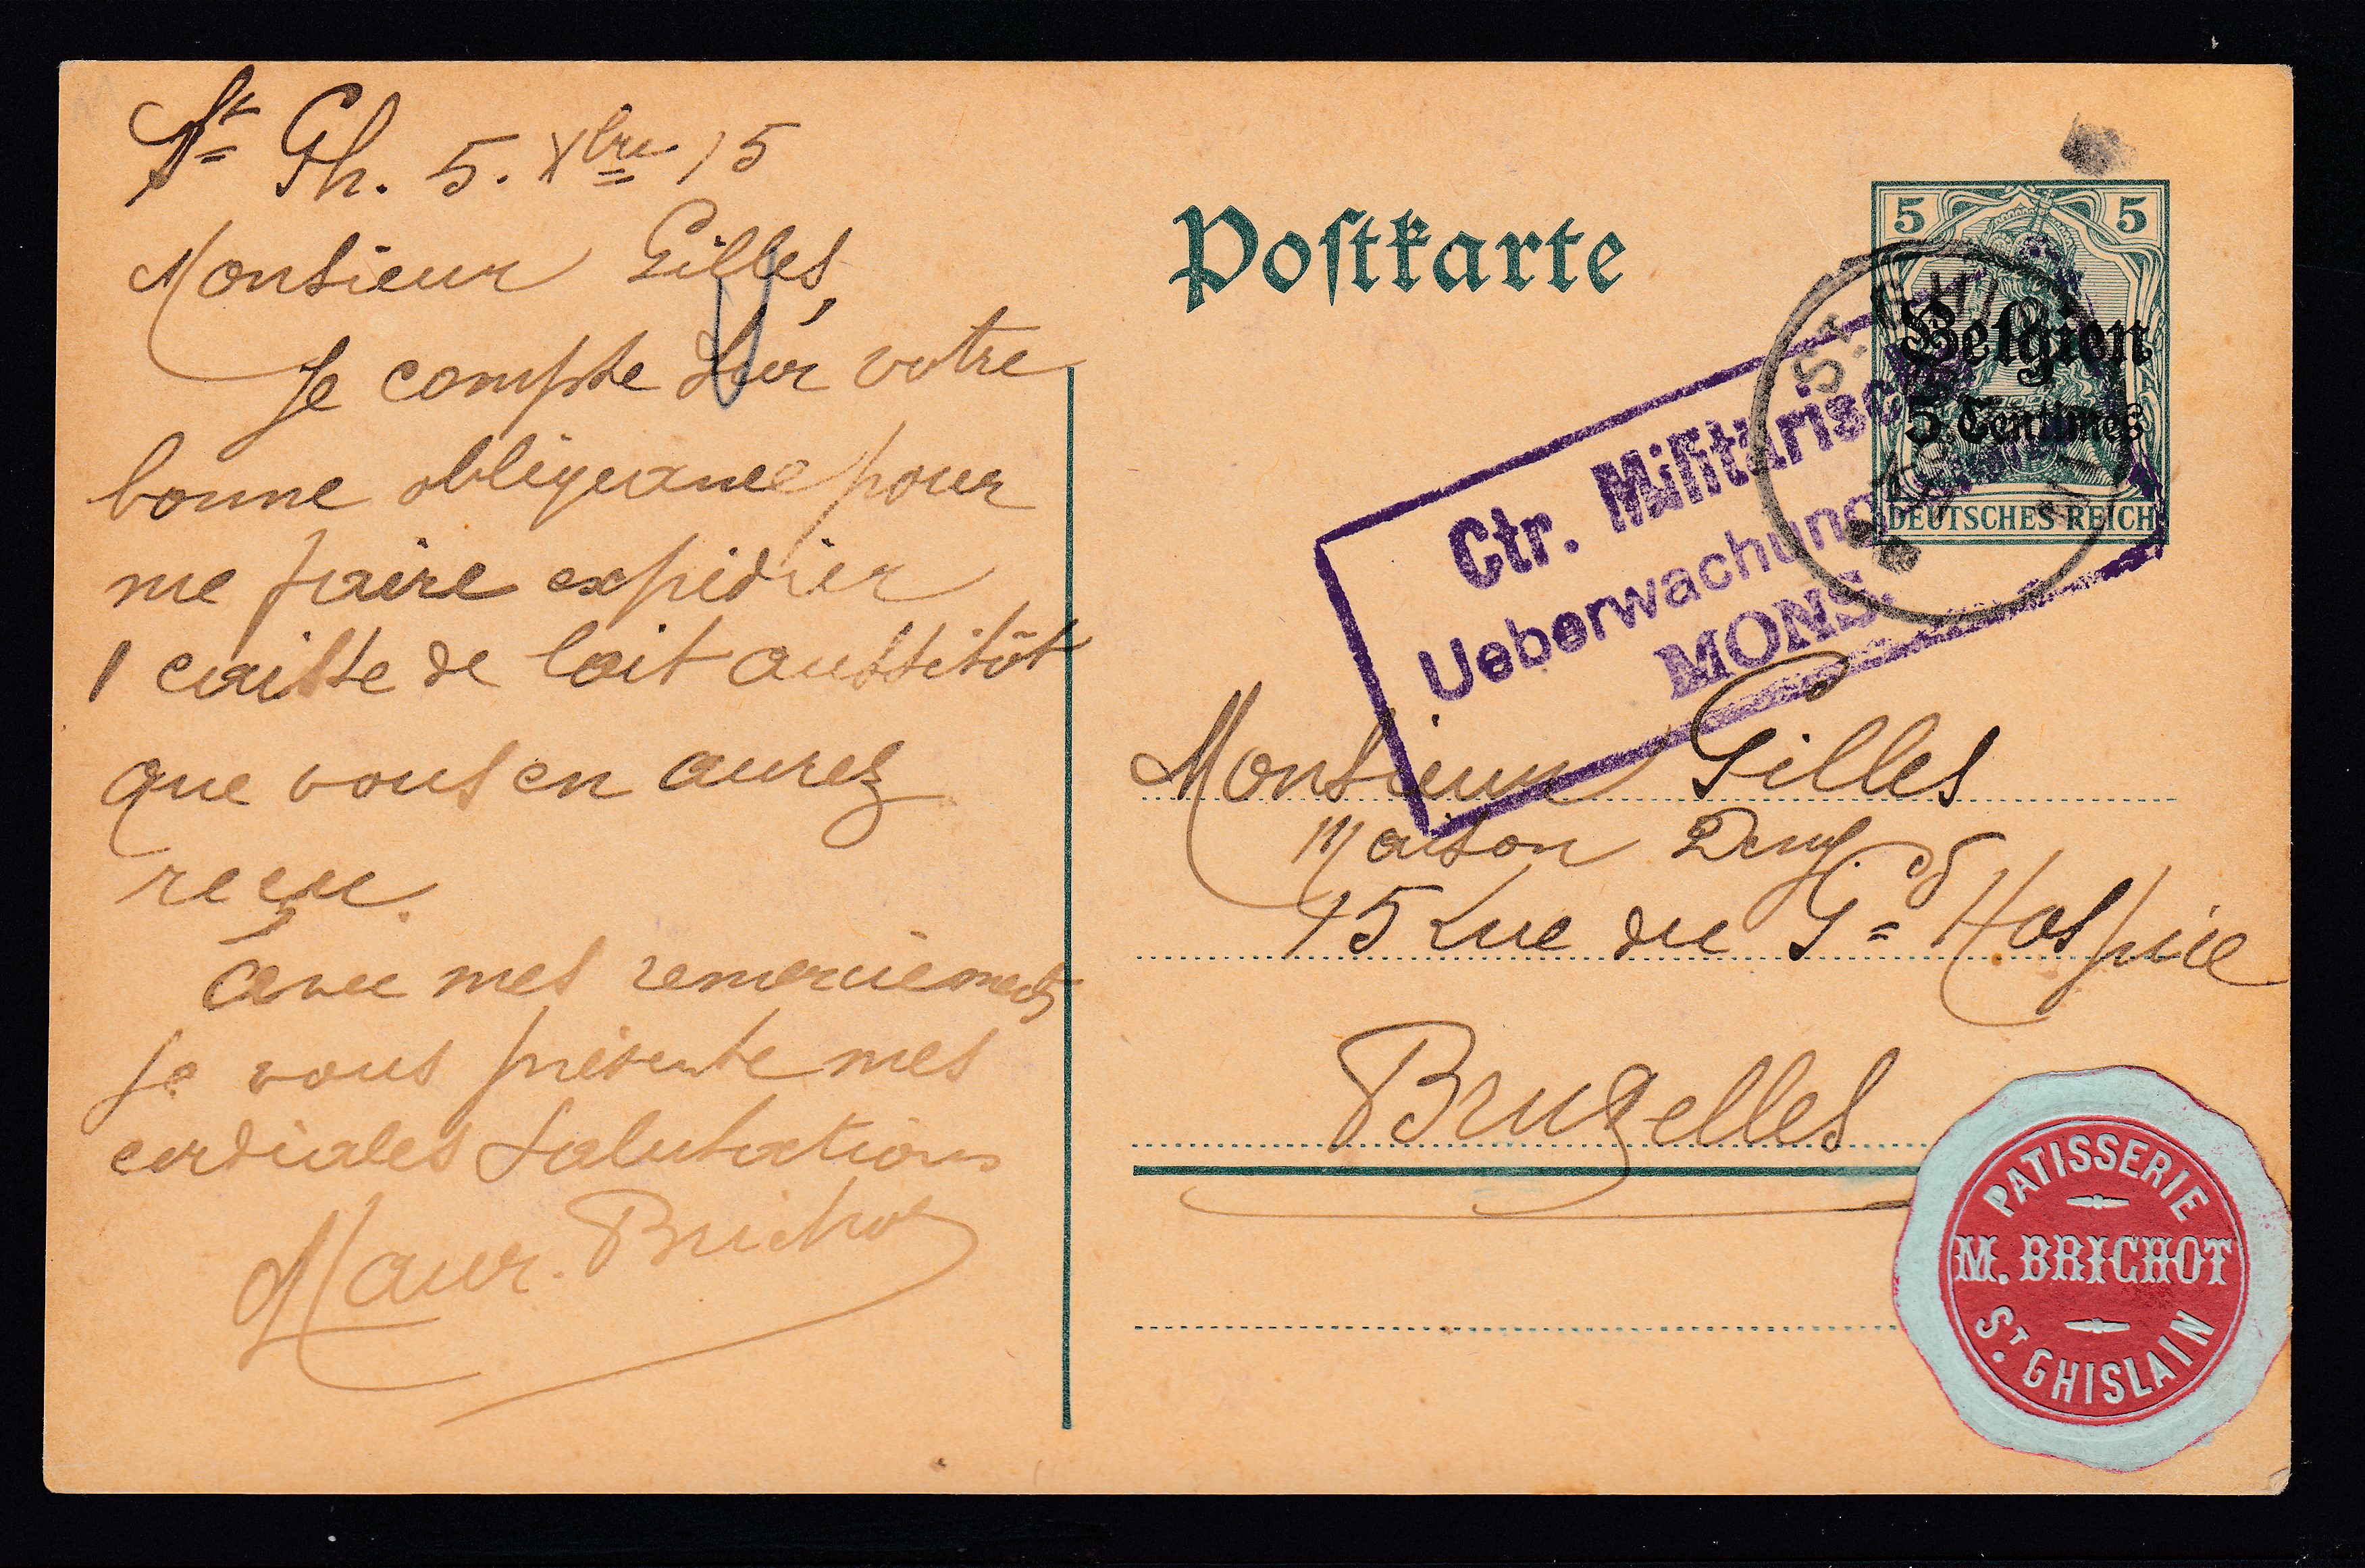 St Gh. 5. Xbre 15
Monsieur Gilles,
Je compte sur votre
bonne obligeance pour
me faire expédier
1 caisse de lait aussitôt
que vous en aurez
reçu.
Avec mes remerciements
je vous présente mes
cordiales salutations
Maur. Brichot
Postkarte
5 5
Belgien
5 Centimes
DEUTSCHES REICH
ST GHISL
Ctr. Militärische
Ueberwachungs
MONS.
Monsieur Gilles
Maison
45 Rue du Gd Hospice
Bruxelles
PATISSERIE
M. BRICHOT
ST. GHISLAIN